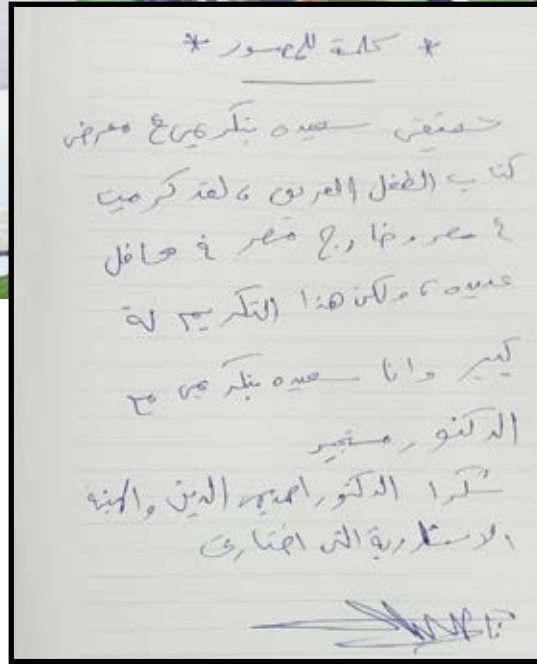 * كلمة للحضور *
حقيقي سعيده بتكريمي في معرض
كتاب الطفل العربي ، لقد كرمت
في مصر وخارج مصر في محافل
عديده ، ولكن هذا التكريم له
كبير وانا سعيده بتكريمي مع
الدكتور مستجير
شكرا الدكتور بهي الدين والهيئة
الاستشارية التي اختارتني